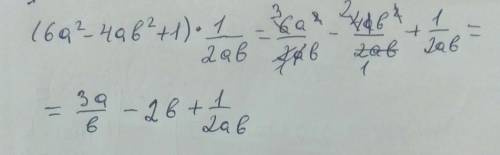 (6a² - 4ab² + 1) · 1/2ab = 6a²/2ab - 4ab²/2ab + 1/2ab =
= 3a/b - 2b + 1/2ab